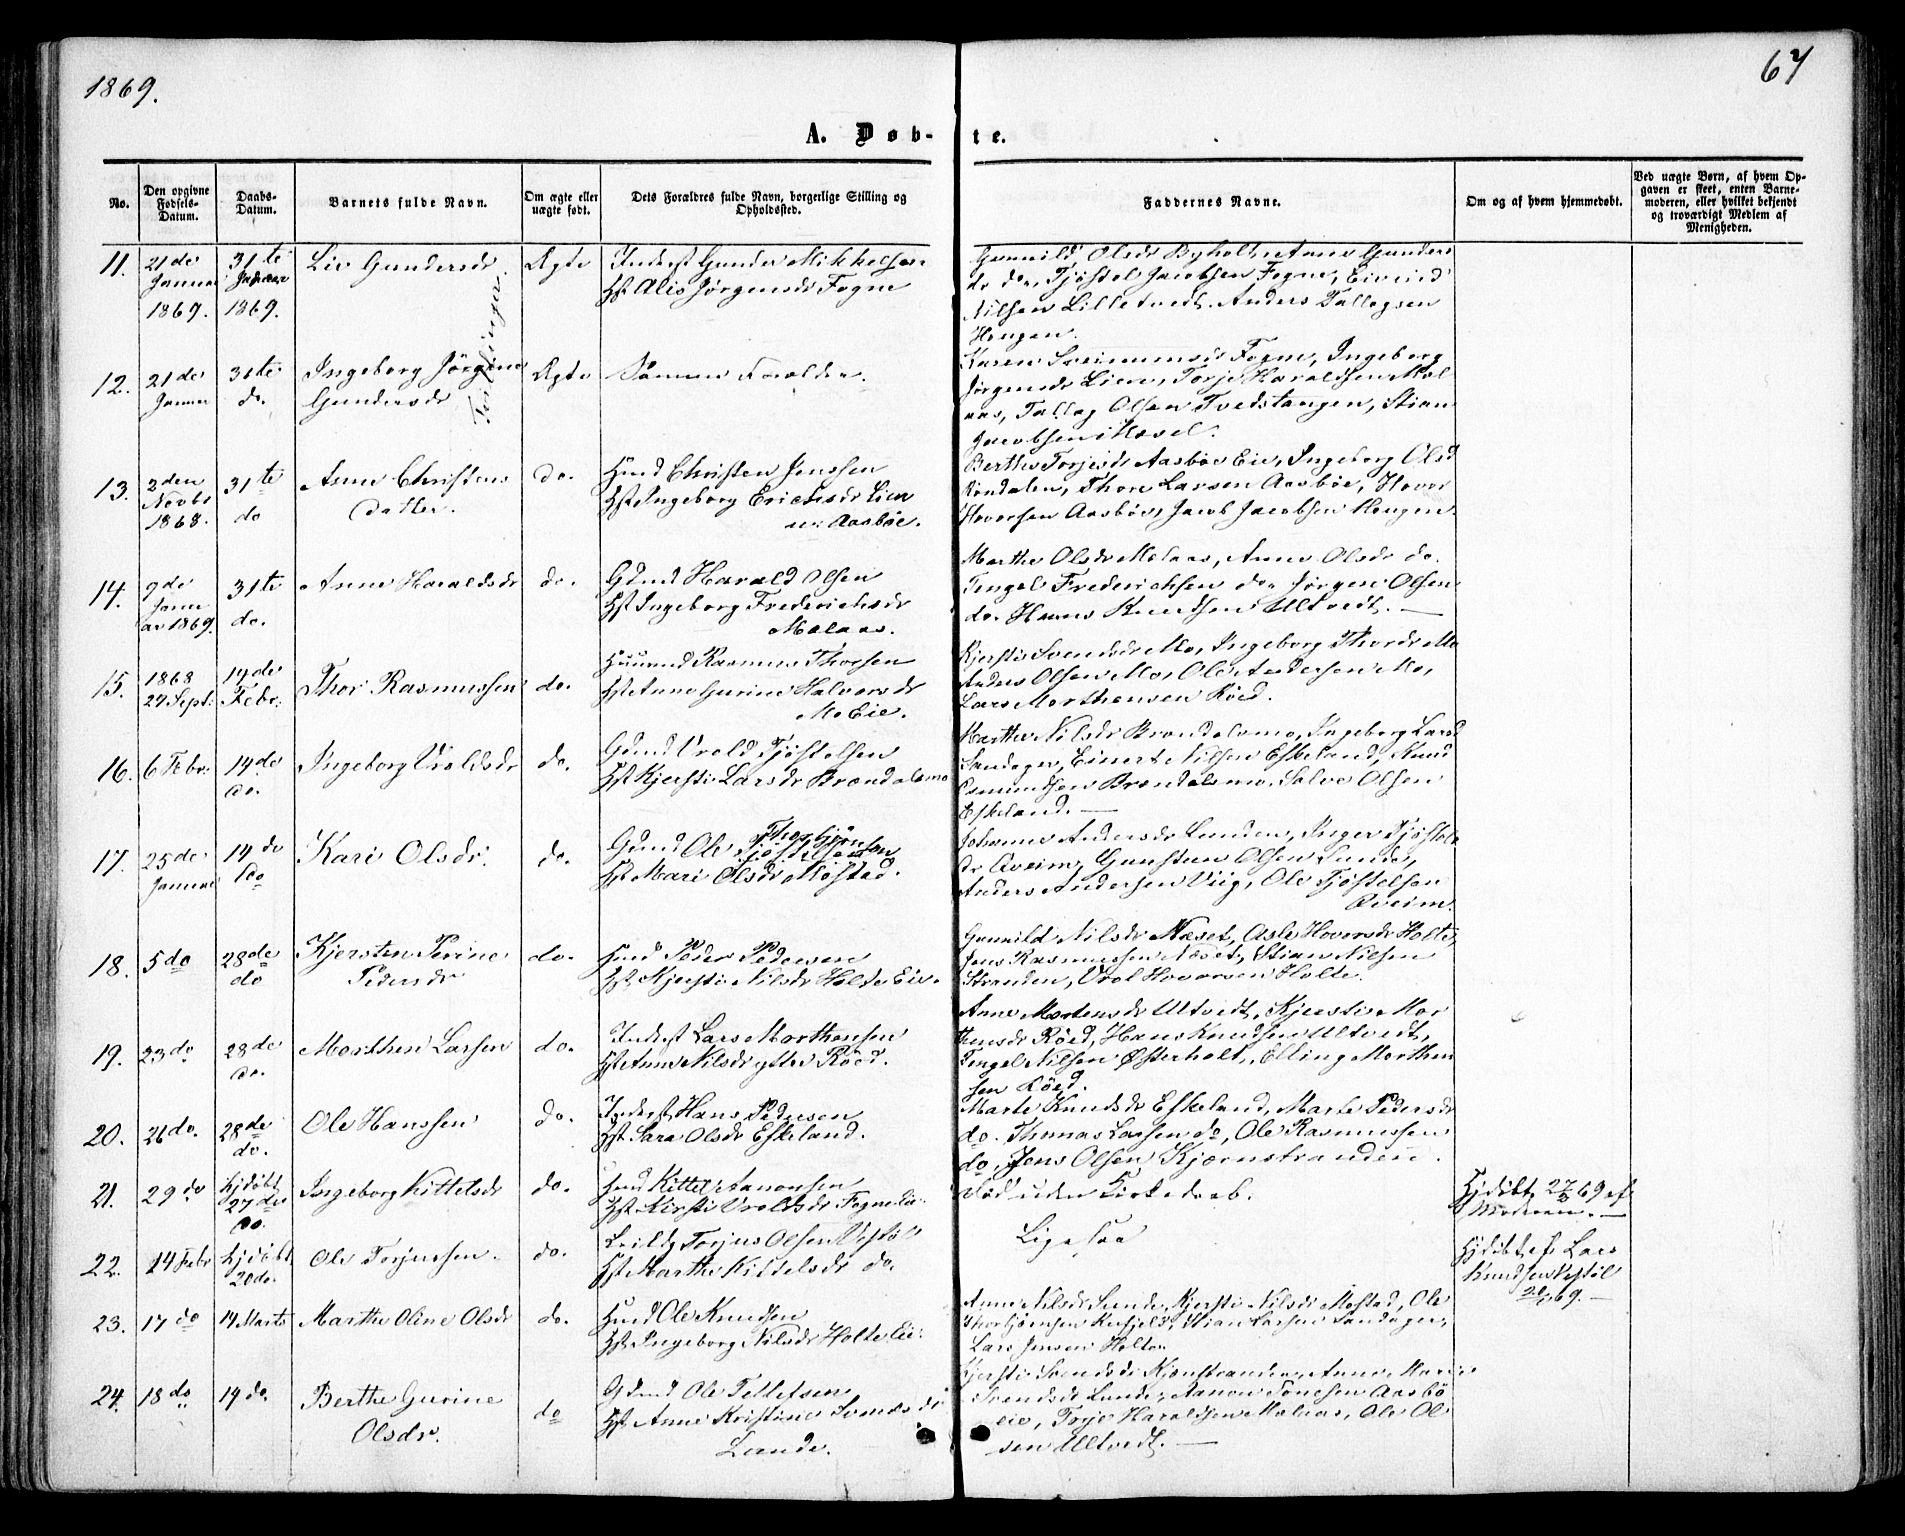 1869.
67
A. Døb-
te.
No.
Den opgivne
Fødsels-
Datum.
Daabs-
Datum.
Barnets fulde Navn.
Om ægte eller
uægte født.
Dets Forældres fulde Navn, borgerlige Stilling og
Opholdssted.
Faddernes Navne.
Om og af hvem hjemmedøbt.
Ved uægte Børn, af hvem Op-
gaven er skeet, enten Barne-
moderen, eller hvilket bekjendt
og troværdigt Medlem af
Menigheden.
11.
21de
Januar
1869.
31te
Januar
1869.
Liv Gundersdr
Tvillinger
Ægte
Inderst Gunder Mikkelsen
Hst Alis Jørgensdr Fogne
Gunnild Olsdr Byholt, Anne Gunders
dr do, Tjøstol Jacobsen Fogne, Eivind
Nilsen Lilletvedt, Anders Tallagsen
Hougen.
12.
21de
Januar
31te
do.
Ingeborg Jørgine
Gundersdr
Ægte
Samme Forældre.
Karen Fogne, Ingeborg
Jørgensdr Lien, Torje Haraldsen Mol
aas, Tallag Olsen Tvedstangen, Stian
Jacobsen
13.
2den
Novbr
1868.
31te
do
Anne Christens
datter.
do.
Hmd Christen Jensen
Hst Ingeborg Erichsdr Lien
Aasbøe.
Berthe Torjesdr Aasbøe Eie, Ingeborg Olsd
Thore Larsen Aasbøe, Hover
Hoversen Aasbøe, Jacob Jacobsen Hougen.
14.
9de
Janu
ar 1869.
31te
do.
Anne Haraldsdr
do.
Gdmd Harald Olsen
Hst Ingeborg Frederichsdr
Molaas.
Marthe Olsdr Molaas, Anne Olsdr do.
Tengel Frederichsen do, Jørgen Olsen
do. Hans Knudsen Ultvedt.
15.
1868
29 Sept:
14de
Febr:
Thor Rasmussen
do.
Huusmd Rasmus Thorsen
Hst Anne Gurine Halvorsdr
Mo Eie.
Kjersti Svendsdr Mo, Ingeborg Thorsdr Mo
Anders Olsen Mo, Ole Andersen Mo,
Lars Morthensen Røed.
16.
6 Febr:
14de
do.
Ingeborg Vroldsdr
do.
Gdmd Vrold Tjøstolsen
Hst Kjersti Larsdr Brændalsmo
Marthe Nilsdr Brændalsmo, Ingeborg Larsd
Sandager, Einert Nilsen Eskeland, Knud
Osmundsen Brændalsmo, Salve Olsen
Eskeland.
17.
25de
Januar
14do
do
Kari Olsdr.
do.
Gdmd Ole Tjøstelsen
Thorbjørnsen
Hst Mari Olsdr Mostad.
Johanne Andersdr Lunden, Inger Tjøstels
dr Øveim, Gunstan Olsen Sunde,
Anders Andersen Viig, Ole Tjøstelsen
Øveim.
18.
5do
28de
do
Kjersten Perine
Pedersdr
do.
Hmd Peder Pedersen
Hst Kjersti Nilsdr Holte Eie.
Gunnild Nilsdr Næset, Asle Hoversdr Holte,
Jens Rasmussen Næset, Stian Nilsen
Stranden, Vrol Hoversen Holte.
19.
23do
28de
do.
Morthen Larsen
do.
Inderst Lars Morthensen
Hst Anne Nilsdr ytter Røed.
Anne Mortensdr Ultvedt, Kjersti Mor
thensdr Røed, Hans Knudsen Ultvedt,
Tengel Nilsen Østerholt, Elling Morthen
sen Røed.
20.
26do.
28de
do.
Ole Hanssen
do.
Inderst Hans Pedersen
Hst Sara Olsdr Eskeland.
Marte Knudsdr Eskeland, Marte Pedersdr
do. Thomas Larsen do, Ole Rasmussen
do, Jens Olsen Kjørnstranden.
21.
29do
hjdøbt
27de
do.
Ingeborg Kittelsdr
do.
Hmd Kittel Aanonsen
Hst Kirsti Vroldsdr Fogne Eie
Død uden Kirkedaab.
Hjdøbt 27/2 69 af
Moderen.
22.
14 Febr
hjdøbt
20do.
Ole Torjussen
do.
Torjus Olsen Vestøl
Hst Marthe Kittelsdr do.
Ligesaa
Hjdøbt af Lars
Knudsen Vestøl
20/2 69.
23.
17do
14 Marts
Marthe Oline Olsdr
do.
Hmd Ole Knudsen
Hst Ingeborg Nilsdr Holte Eie
Anne Nilsdr Sunde, Kjersti Nilsdr Mostad, Ole
Thorbjørnsen Stian Larsen Sandager,
Lars Jensen Holte
24.
18do
14do
Berthe Gurine
Olsdr.
do
Gdmd Ole Tellefsen
Hst Anne Kristine Svends dr
Lunde.
Kjersti Svendsdr Kjønstranden, Anne Marie
Svendsdr Lunde, Aanon Tonesen Aasbø
eie, Torje Haraldsen Molaas, Ole Ol
sen Ultvedt.